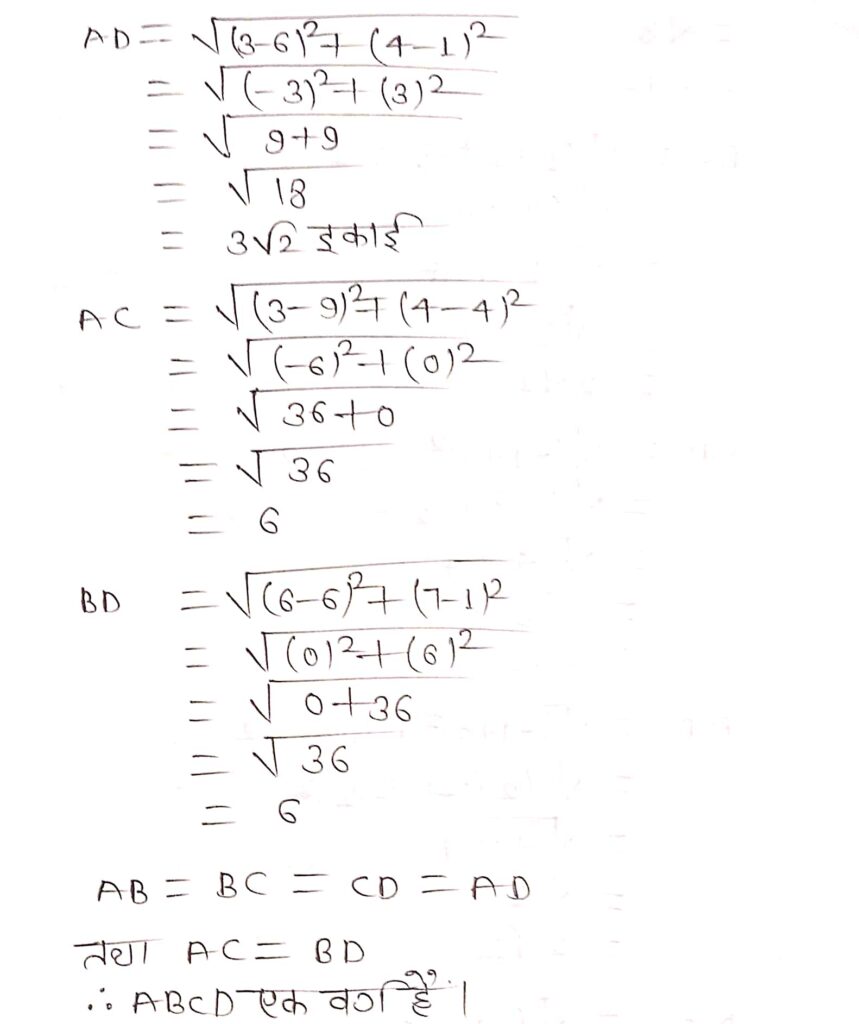 AD = √(3-6)²+ (4-1)²
= √(-3)²+ (3)²
= √9+9
= √18
= 3√2 इकाई
AC = √(3-9)²+ (4-4)²
= √(-6)²+ (0)²
= √36+0
= √36
= 6
BD = √(6-6)²+ (7-1)²
= √(0)²+(6)²
= √0+36
= √36
= 6
AB = BC = CD = AD
तथा AC = BD
∴ ABCD एक वर्ग है।